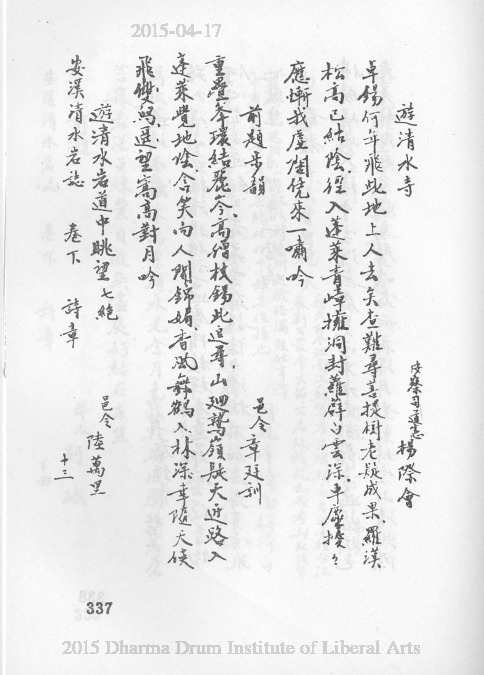 2015-04-17
遊清水寺
按察司道憲 楊際會
卓錫何年飛此地上人去矣杳難尋菩提樹老疑成果羅漢
松高已結陰徑入蓬萊青嶂擁洞封蘿薜白雲深車塵擾々
應慚我虛閣僥來一嘯吟
前題步韻
邑令 章廷訓
重疊峯環結麗岑高僧杖錫此追尋山迴鷲嶺疑天近路入
蓬萊覺地陰含笑向人開錦娟香風舞鶴入林深幸隨天使
飛雙舄還望嵩高對月吟
遊清水岩道中眺望七絕
邑令 陸萬里
安溪清水岩誌 卷下 詩章
十二
337
2015 Dharma Drum Institute of Liberal Arts